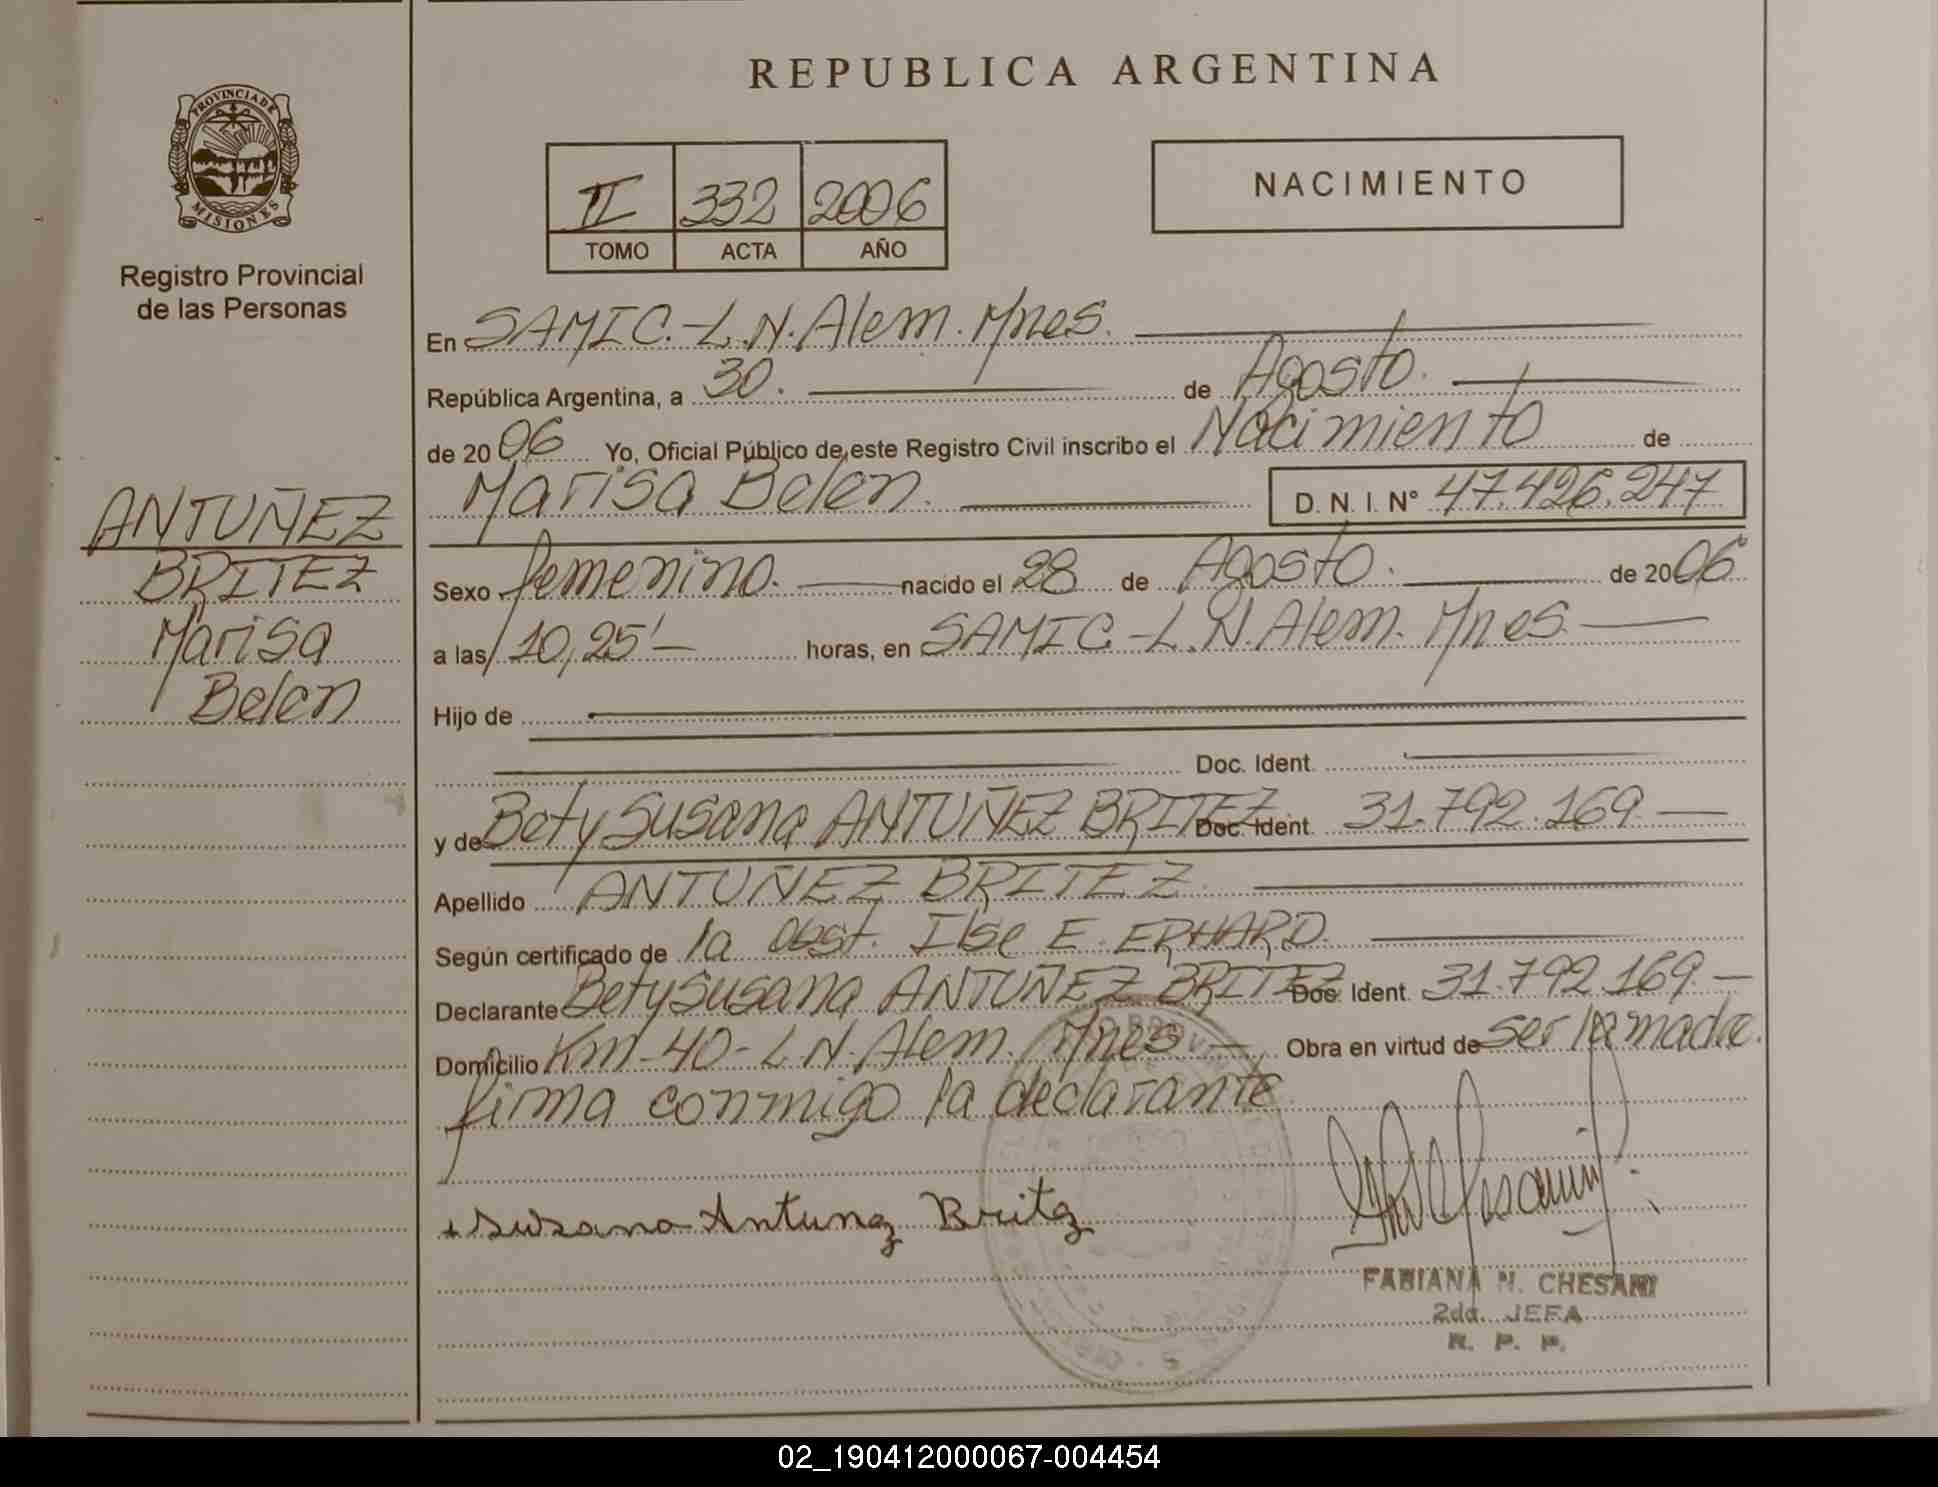 REPUBLICA ARGENTINA
PROVINCIA DE
MISIONES
Registro Provincial
de las Personas
II 332 2006
TOMO ACTA AÑO
NACIMIENTO
ANTUÑEZ
BRITEZ
Marisa
Belen
En SAMIC.-L.N.Alem.Mnes.
República Argentina, a 30. de Agosto.
de 2006 Yo, Oficial Público de este Registro Civil inscribo el Nacimiento de
Marisa Belen. D. N. I. N° 47.426.247
Sexo femenino. nacido el 28 de Agosto. de 2006
a las 10,25'- horas, en SAMIC-L.N.Alem.Mnes.
Hijo de
Doc. Ident.
y de Bety Susana ANTUÑEZ BRITEZ Doc. Ident. 31.792.169
Apellido ANTUÑEZ BRITEZ.
Según certificado de la obst. Ilse E. ERHARD.
Declarante Bety Susana ANTUÑEZ BRITEZ Doc. Ident. 31.792.169.-
Domicilio Km-40-L.N.Alem. Mnes - Obra en virtud de ser la madre.
firma conmigo la declarante
+ Susana Antunez Britz
FABIANA N. CHESANI
2da. JEFA
R. P. P.
02_190412000067-004454